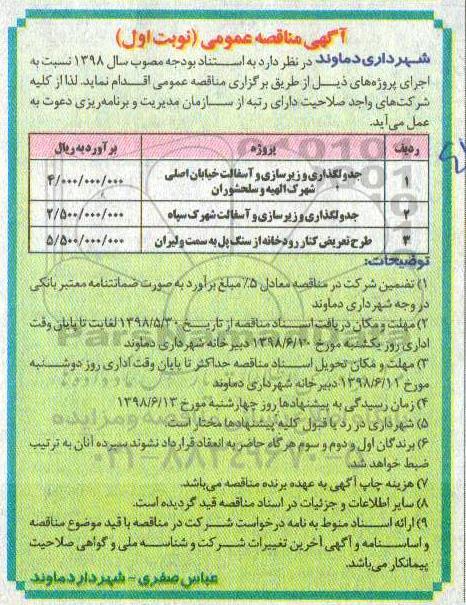 آگهی مناقصه عمومی (نوبت اول)
شهرداری دماوند در نظر دارد به استناد بودجه مصوب سال ۱۳۹۸ نسبت به
اجرای پروژه‌های ذیل از طریق برگزاری مناقصه عمومی اقدام نماید. لذا از کلیه
شرکت‌های واجد صلاحیت دارای رتبه از سازمان مدیریت و برنامه‌ریزی دعوت به
عمل می‌آید.
ردیف پروژه برآورد به ریال
۱ جدولگذاری و زیرسازی و آسفالت خیابان اصلی شهرک الهیه و سلحشوران ۴/۰۰۰/۰۰۰/۰۰۰
۲ جدولگذاری و زیرسازی و آسفالت شهرک سپاه ۲/۵۰۰/۰۰۰/۰۰۰
۳ طرح تعریض کنار رودخانه از سنگ پل به سمت ولیران ۵/۵۰۰/۰۰۰/۰۰۰
توضیحات:
۱) تضمین شرکت در مناقصه معادل ۵٪ مبلغ برآورد به صورت ضمانتنامه معتبر بانکی
در وجه شهرداری دماوند
۲) مهلت و مکان دریافت اسناد مناقصه از تاریخ ۱۳۹۸/۵/۳۰ لغایت تا پایان وقت
اداری روز یکشنبه مورخ ۱۳۹۸/۶/۱۰ دبیرخانه شهرداری دماوند
۳) مهلت و مکان تحویل اسناد مناقصه حداکثر تا پایان وقت اداری روز دوشنبه
مورخ ۱۳۹۸/۶/۱۱ دبیرخانه شهرداری دماوند
۴) زمان رسیدگی به پیشنهادها روز چهارشنبه مورخ ۱۳۹۸/۶/۱۳
۵) شهرداری در رد یا قبول کلیه پیشنهادها مختار است.
۶) برندگان اول و دوم و سوم هرگاه حاضر به انعقاد قرارداد نشوند سپرده آنان به ترتیب
ضبط خواهد شد.
۷) هزینه چاپ آگهی به عهده برنده مناقصه می‌باشد.
۸) سایر اطلاعات و جزئیات در اسناد مناقصه قید گردیده است.
۹) ارائه اسناد منوط به نامه درخواست شرکت در مناقصه با قید موضوع مناقصه
و اساسنامه و آگهی آخرین تغییرات شرکت و شناسه ملی و گواهی صلاحیت
پیمانکار می‌باشد.
عباس صفری - شهردار دماوند